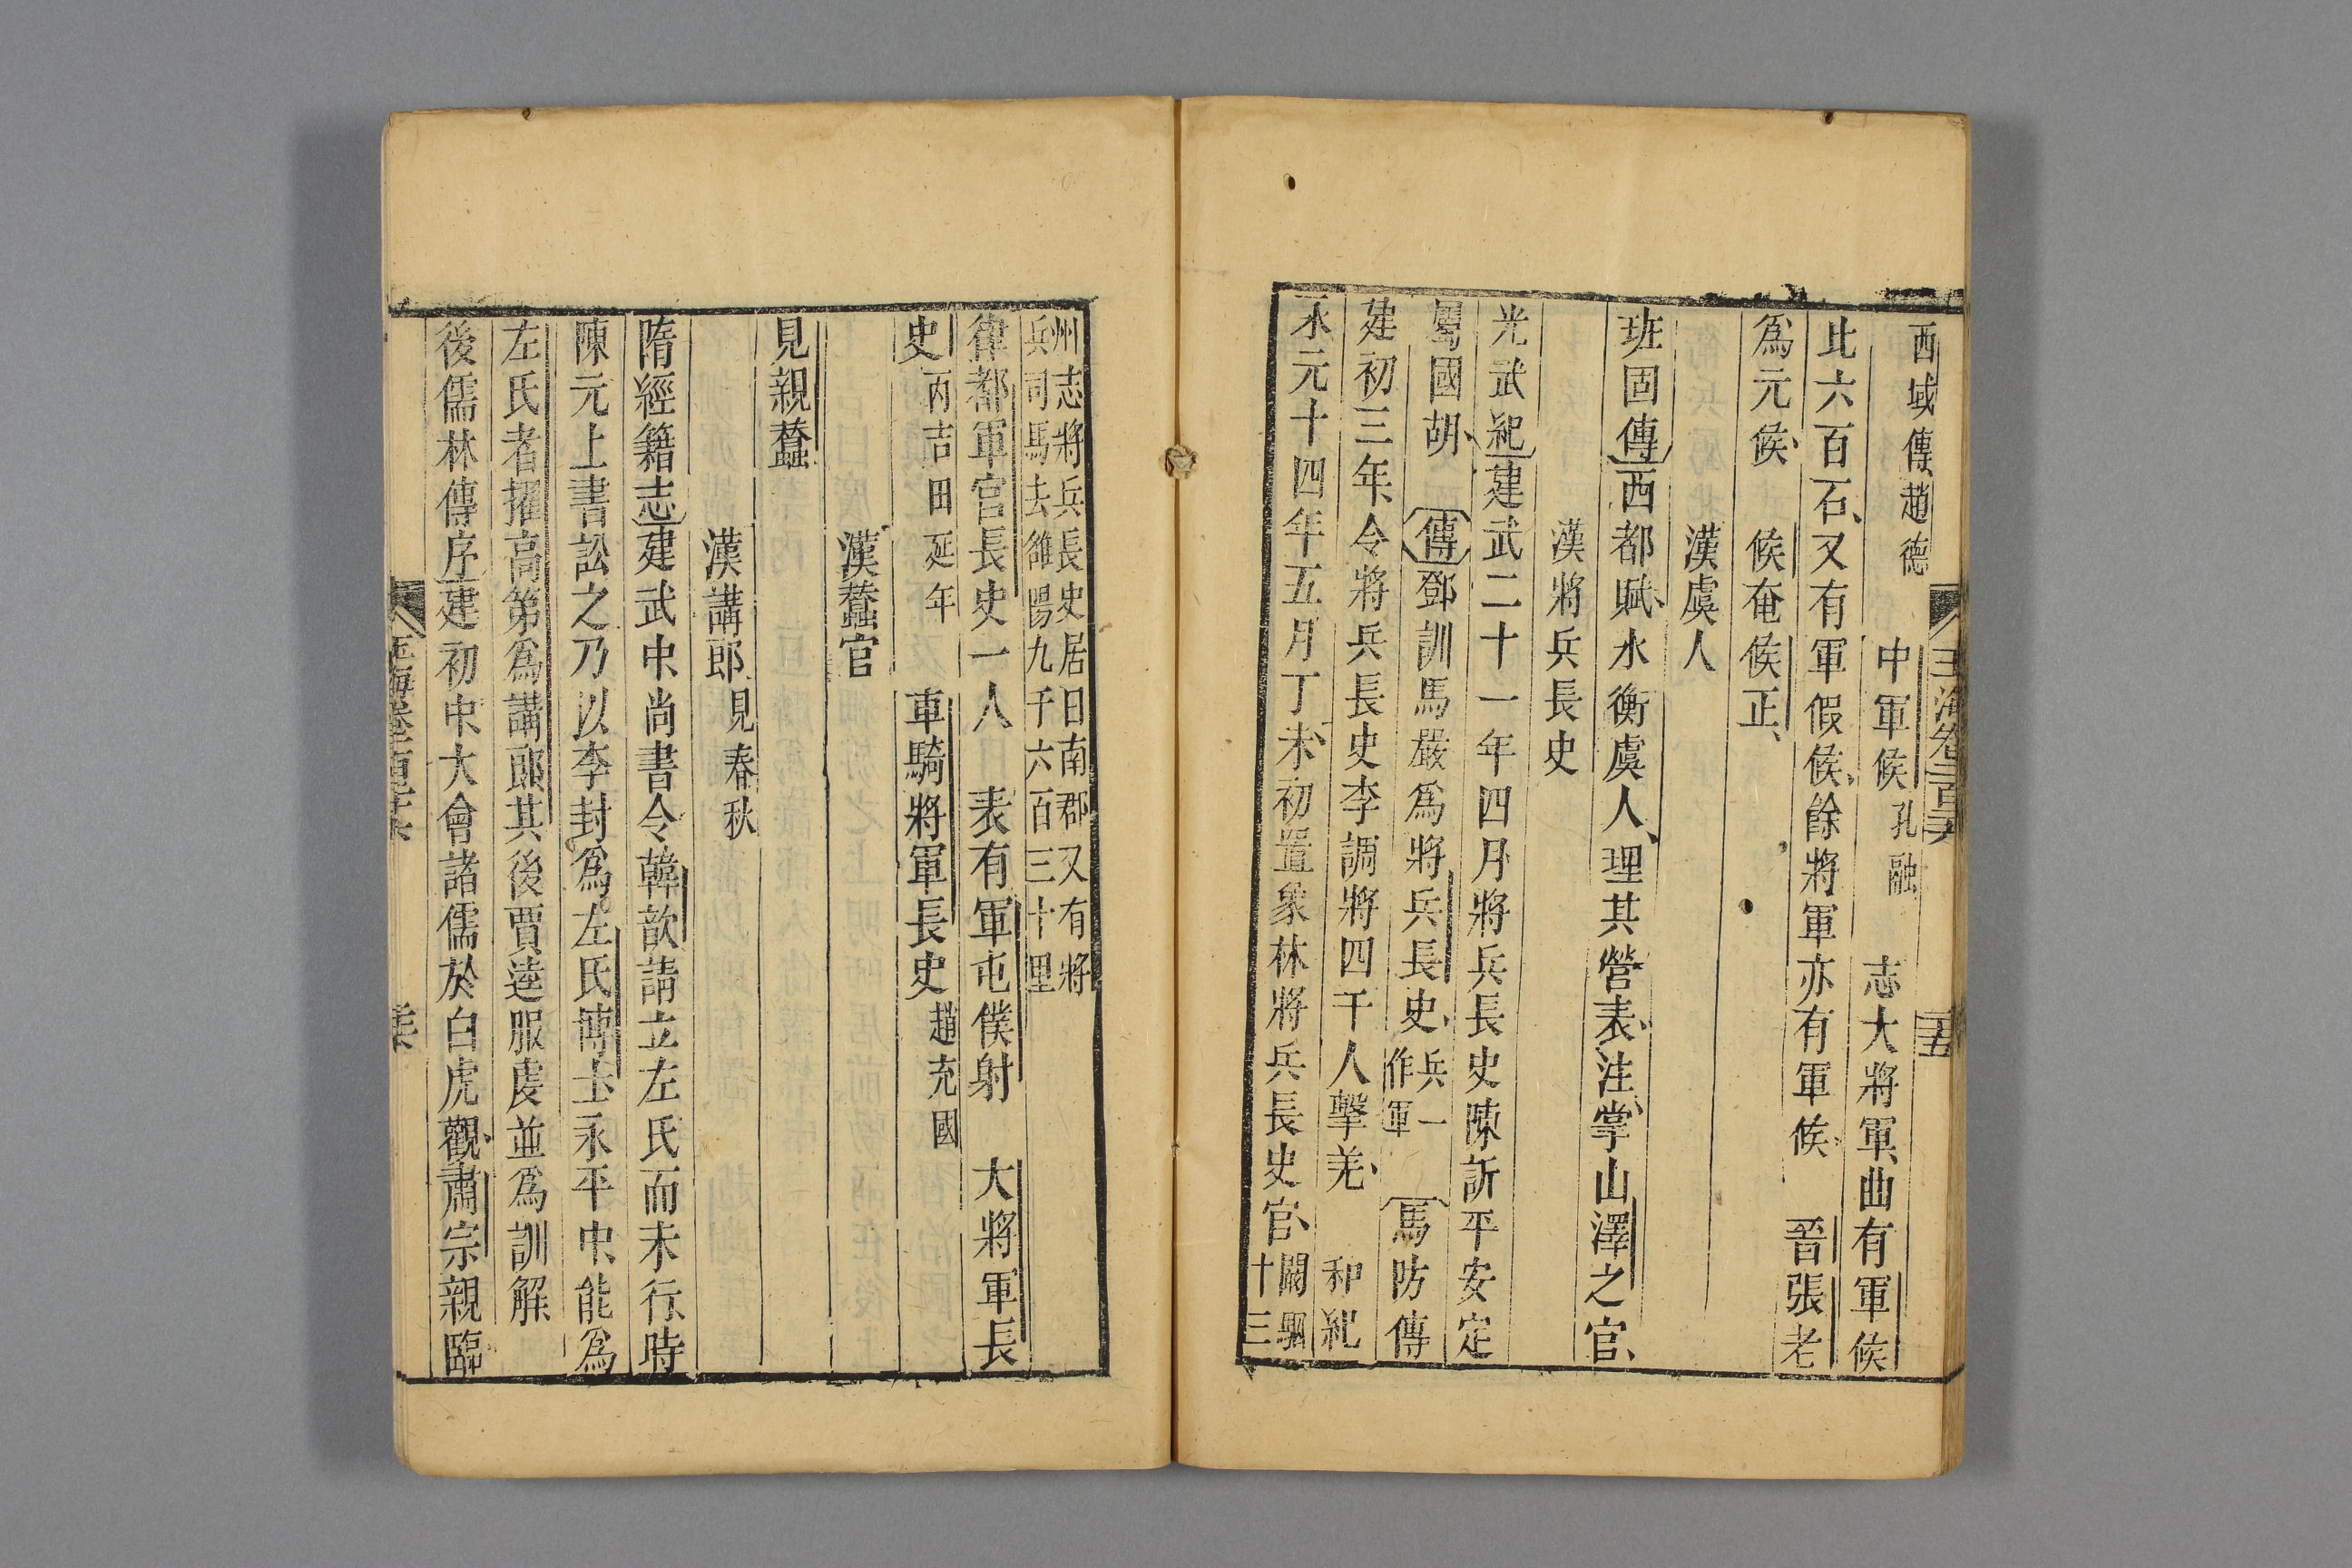 西域傳趙德 中軍候 孔融 志大將軍曲有軍候
比六百石又有軍假候餘將軍亦有軍候 晉張老
爲元候 候奄候正
漢虞人
班固傳西都賦水衡虞人理其營表注掌山澤之官
漢將兵長史
光武紀建武二十一年四月將兵長史陳訢平安定
屬國胡 傳鄧訓馬嚴爲將兵長史 兵一作軍 馬防傳
建初三年令將兵長史李調將四千人擊羌 和紀
永元十四年五月丁未初置象林將兵長史官 闞駰十三
州志將兵長史居日南郡又有將
兵司馬去雒陽九千六百三十里
律都軍官長史一人 表有軍屯僕射 大將軍長
史 丙吉田延年 車騎將軍長史 趙充國
漢蠶官
見親蠶
漢講郎 見春秋
隋經籍志建武中尚書令韓歆請立左氏而未行時
陳元上書訟之乃以李封爲左氏博士永平中能爲
左氏者擢高第爲講郎其後賈逵服虔並爲訓解
後儒林傳序建初中大會諸儒於白虎觀肅宗親臨